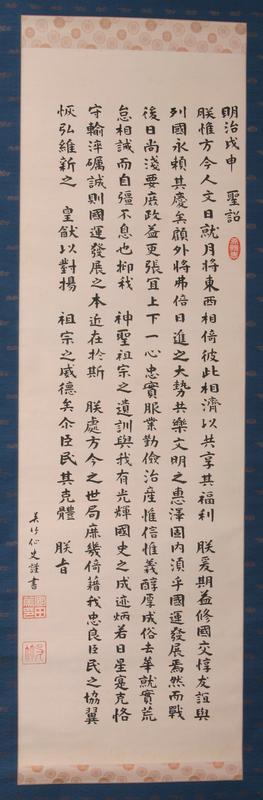 明治戊申 聖詔
朕惟方今人文日就月將東西相倚彼此相濟以共享其福利 朕爰期益修國交惇友誼與
列國永賴其慶矣顧外將弗倍日進之大勢共樂文明之惠澤固内須乎國運發展焉然而戰
後日尚淺要庶政益更張宜上下一心忠實服業勤儉治產惟信惟義醇厚成俗去華就實荒
怠相誡而自彊不息也抑我 神聖祖宗之遺訓與我有光輝國史之成迹炳若日星寔克恪
守輸淬礪誠則國運發展之本近在於斯 朕處方今之世局庶幾倚藉我忠良臣民之協翼
恢弘維新之 皇猷以對揚 祖宗之威德矣尒臣民其克體 朕旨
竹仙史謹書